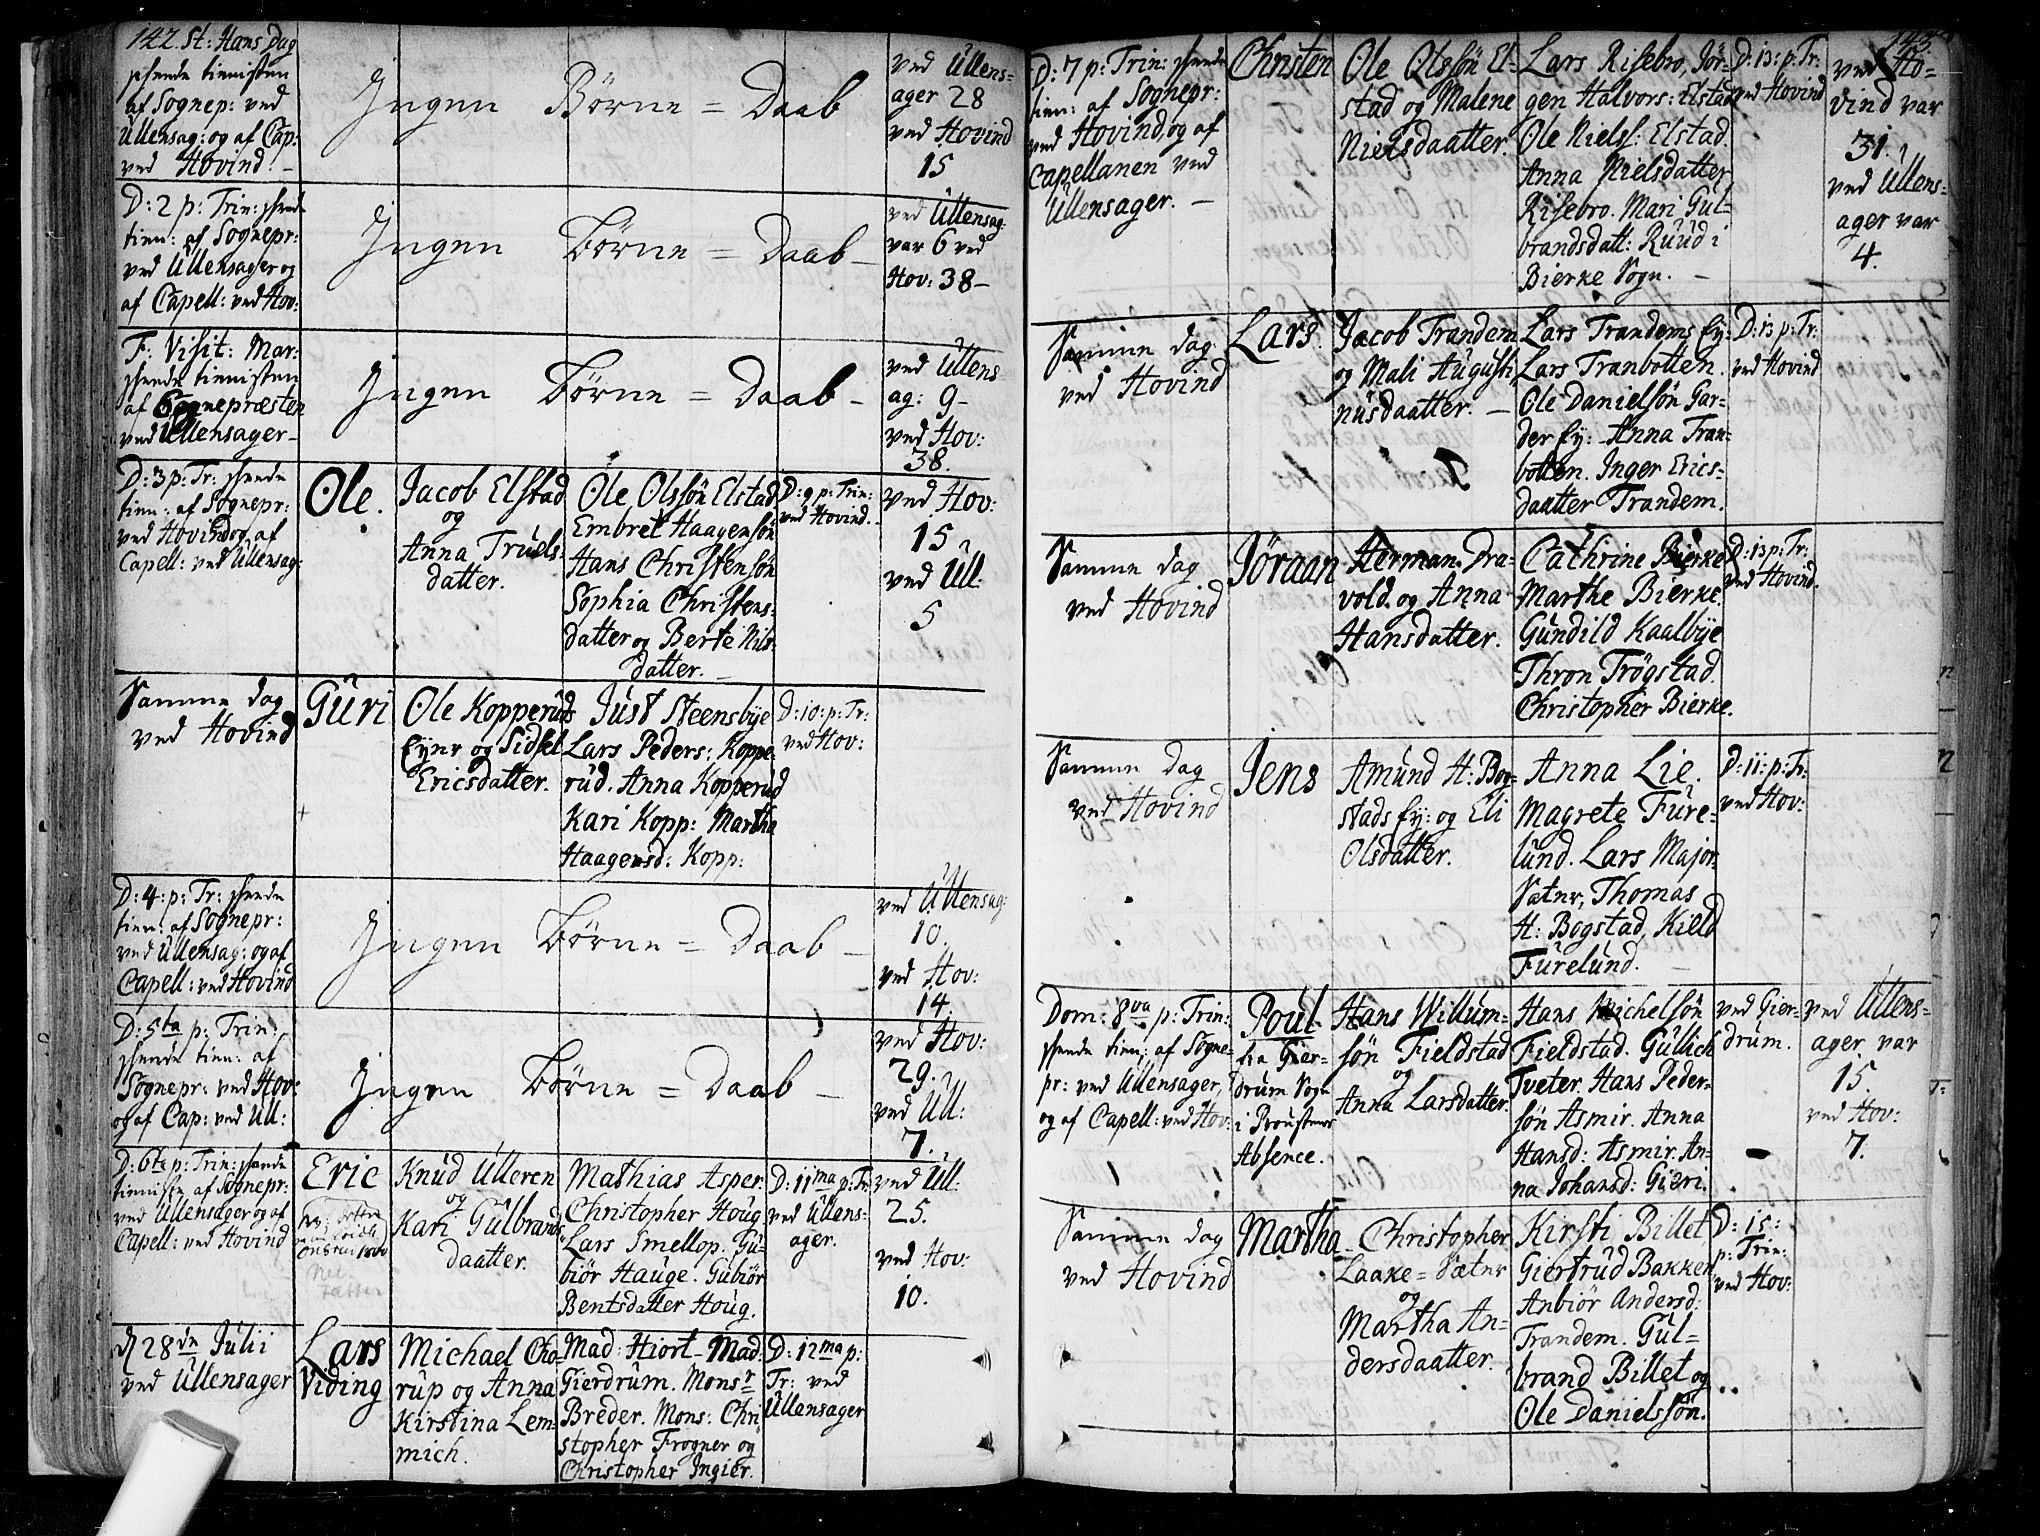 142. St: Hans Dag
skeede tienisten
af Sognep: ved
Ullensag: og af Cap:
ved Hovind. –
Jngen Börne = Daab
ved Ullens-
ager 28
ved Hovind
15
D: 2 p: Trin: skeede
tien: af Sognepr:
ved Ullensager og
af Capell: ved Hov:
Jngen Börne = Daab –
ved Ullensag:
var 6 ved
Hov: 38 –
F: Visit: Mar:
skeede tienisten
af Sognepræsten
ved Ullensager –
Jngen Börne = Daab –
ved Ullens
ag: 9 –
ved Hov:
38.
D: 3 p: Tr: skeede
tien: af Sognepr:
ved Hovind og af
Capell: ved Ullensag:
Ole.
Jacob Elstad
og
Anna Truels-
datter.
Ole Olssön Elstad
Embret Haagensön
Hans Christensön
Sophia Christens-
datter og Berte Nils-
datter. –
D: 9 p: Trin:
ved Hovind.
ved Hov:
15
ved Ull:
5
Samme dag
ved Hovind
Guri
Ole Kopperuds
Eynr og Sidsel
Ericsdatter.
Just Steensbye
Lars Peders: Koppe-
rud. Anna Kopperud
Kari Kopp: Martha
Haagensd: Kopp:
D: 10: p: Tr:
ved Hov:
D: 4: p: Tr: skeede
tien: af Sognepr:
ved Ullensag: og af
Capell: ved Hovind
Jngen Börne = Daab –
ved Ullensag:
10.
ved Hov:
14.
D: 5ta p: Trin:
skeede tien: af
Sognepr: ved Hov:
og af Cap: ved Ull:
Jngen Börne = Daab –
ved Hov:
29.
ved Ull:
7.
D: 6ta p: Trin: skeede
tienisten af Sognepr:
ved Ullensager og af
Capell: ved Hovind
Eric
Knud Ulleren
og
Kari Gulbrands
daatter.
Mathias Asper.
Christopher Houg
Lars Smellop. Gu-
biör Hauge. Gubiör
Bentsdatter Houg.
D: 11ma p: Tr:
ved Ullens-
ager.
ved Ull:
25.
ved Hov:
10.
d 28de Julii
ved Ullensager
Lars
Viding
Michael Cho-
rup og Anna
Kirstina Lem-
mich.
Mad: Hiort Mad:
Gierdrum. Monsr
Breder. Mons: Chri
stopher Frogner og
Christopher Ingier.
D: 12ma p:
Tr: ved
Ullensager
143.
D: 7 p: Trin: skeede
tien: af Sognepr:
ved Hovind og af
Capellanen ved
Ullensager. –
Christen
Ole Olssön El-
stad og Malene
Nielsdaatter.
Lars Risebro, Jör-
gen Halvors: Elstad
Ole Niels: Elstad.
Anna Nielsdatter
Risebro. Mari Gul-
brandsdatt: Ruud i
Bierke Sogn. –
D: 13: p: Tr:
ved Hovind
ved Ho-
vind var
31.
ved Ullens-
ager var
4.
Samme dag
ved Hovind
Lars.
Jacob Trandem
og Mali Augusti
nusdaatter. –
Lars Trandems Ey:
Lars Tranbotten.
Ole Danielsön Gar-
der Ey: Anna Tran-
botten. Inger Erics-
daatter Trandem.
D: 13 p: Tr:
ved Hovind
Samme dag
ved Hovind
Jöraan
Herman Dra-
vold. og Anna
Hansdatter.
Cathrine Bierke
Marthe Bierke.
Gundild Kaalbye
Thron Trögstad.
Christopher Bierke.
D: 13 p: Tr:
ved Hovind.
Samme Dag
ved Hovind
Jens
Amund H: Bog-
stads Ey: og Eli
Olsdatter.
Anna Lie.
Magrete Fure-
lund. Lars Major-
Sætnr, Thomas
H: Bogstad, Kield
Furelund. –
D: 11: p: Tr:
ved Hov:
Dom: 8va p: Trin:
skeede tien: af Sogne-
pr: ved Ullensager,
og af Capell: ved Hov:
Poul
fra Gier-
drum Sogn
i Proustens
Absence.
Hans Willum-
sön Fieldstad
og
Anna Larsdatter.
Hans Michelsön
Fieldstad. Gullich
Tveter. Hans Peder-
sön Asmir. Anna
Hansd: Asmir. An-
na Johansd: Gieri.
ved Gier-
drum.
ved Ullens-
ager var
15.
ved Hov:
7.
Samme dag
ved Hovind
Martha
Christopher
Laake = Sætnr
og
Martha An-
dersdaatter.
Kirsti Billet,
Giertrud Bakken
Anbiör Andersd:
Trandem. Gul-
brand Billet og
Ole Danielssön.
D: 15:
p: Trin:
ved Hov: